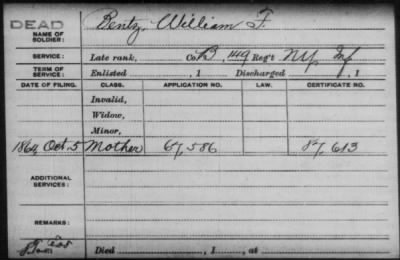 DEAD
NAME OF SOLDIER: Bentz, William F.
SERVICE: Late rank, Co. B, 149 Reg't NY Inf
TERM OF SERVICE: Enlisted , 1 Discharged , 1
DATE OF FILING. CLASS. APPLICATION NO. LAW. CERTIFICATE NO.
Invalid,
Widow,
Minor,
1864, Oct. 5 Mother 67,586 87,613
ADDITIONAL SERVICES:
REMARKS:
Died , 1 , at